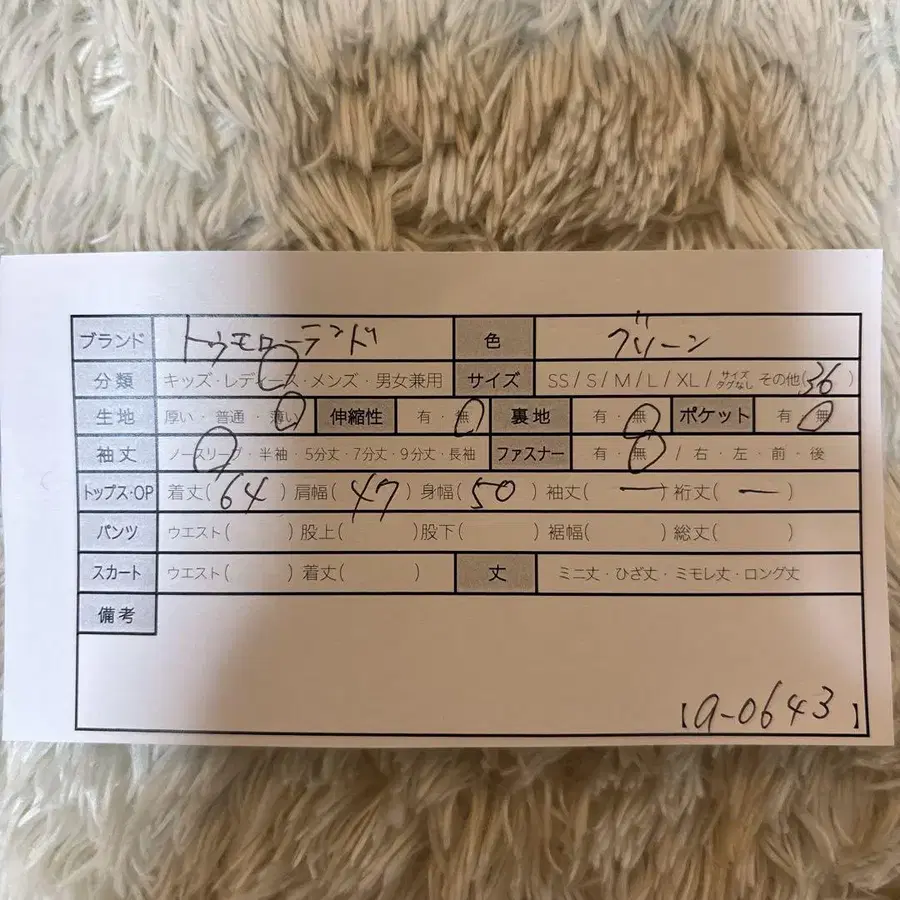 ブランド トゥモローランド 色 グリーン
分類 キッズ・レディース・メンズ・男女兼用 サイズ SS/S/M/L/XL/サイズタグなし その他(36)
生地 厚い・普通・薄い 伸縮性 有・無 裏地 有・無 ポケット 有・無
袖丈 ノースリーブ・半袖・5分丈・7分丈・9分丈・長袖 ファスナー 有・無/右・左・前・後
トップス・OP 着丈(64) 肩幅(47) 身幅(50) 袖丈(ー) 裄丈(ー)
パンツ ウエスト( ) 股上( ) 股下( ) 裾幅( ) 総丈( )
スカート ウエスト( ) 着丈( ) 丈 ミニ丈・ひざ丈・ミモレ丈・ロング丈
備考
【a-0643】